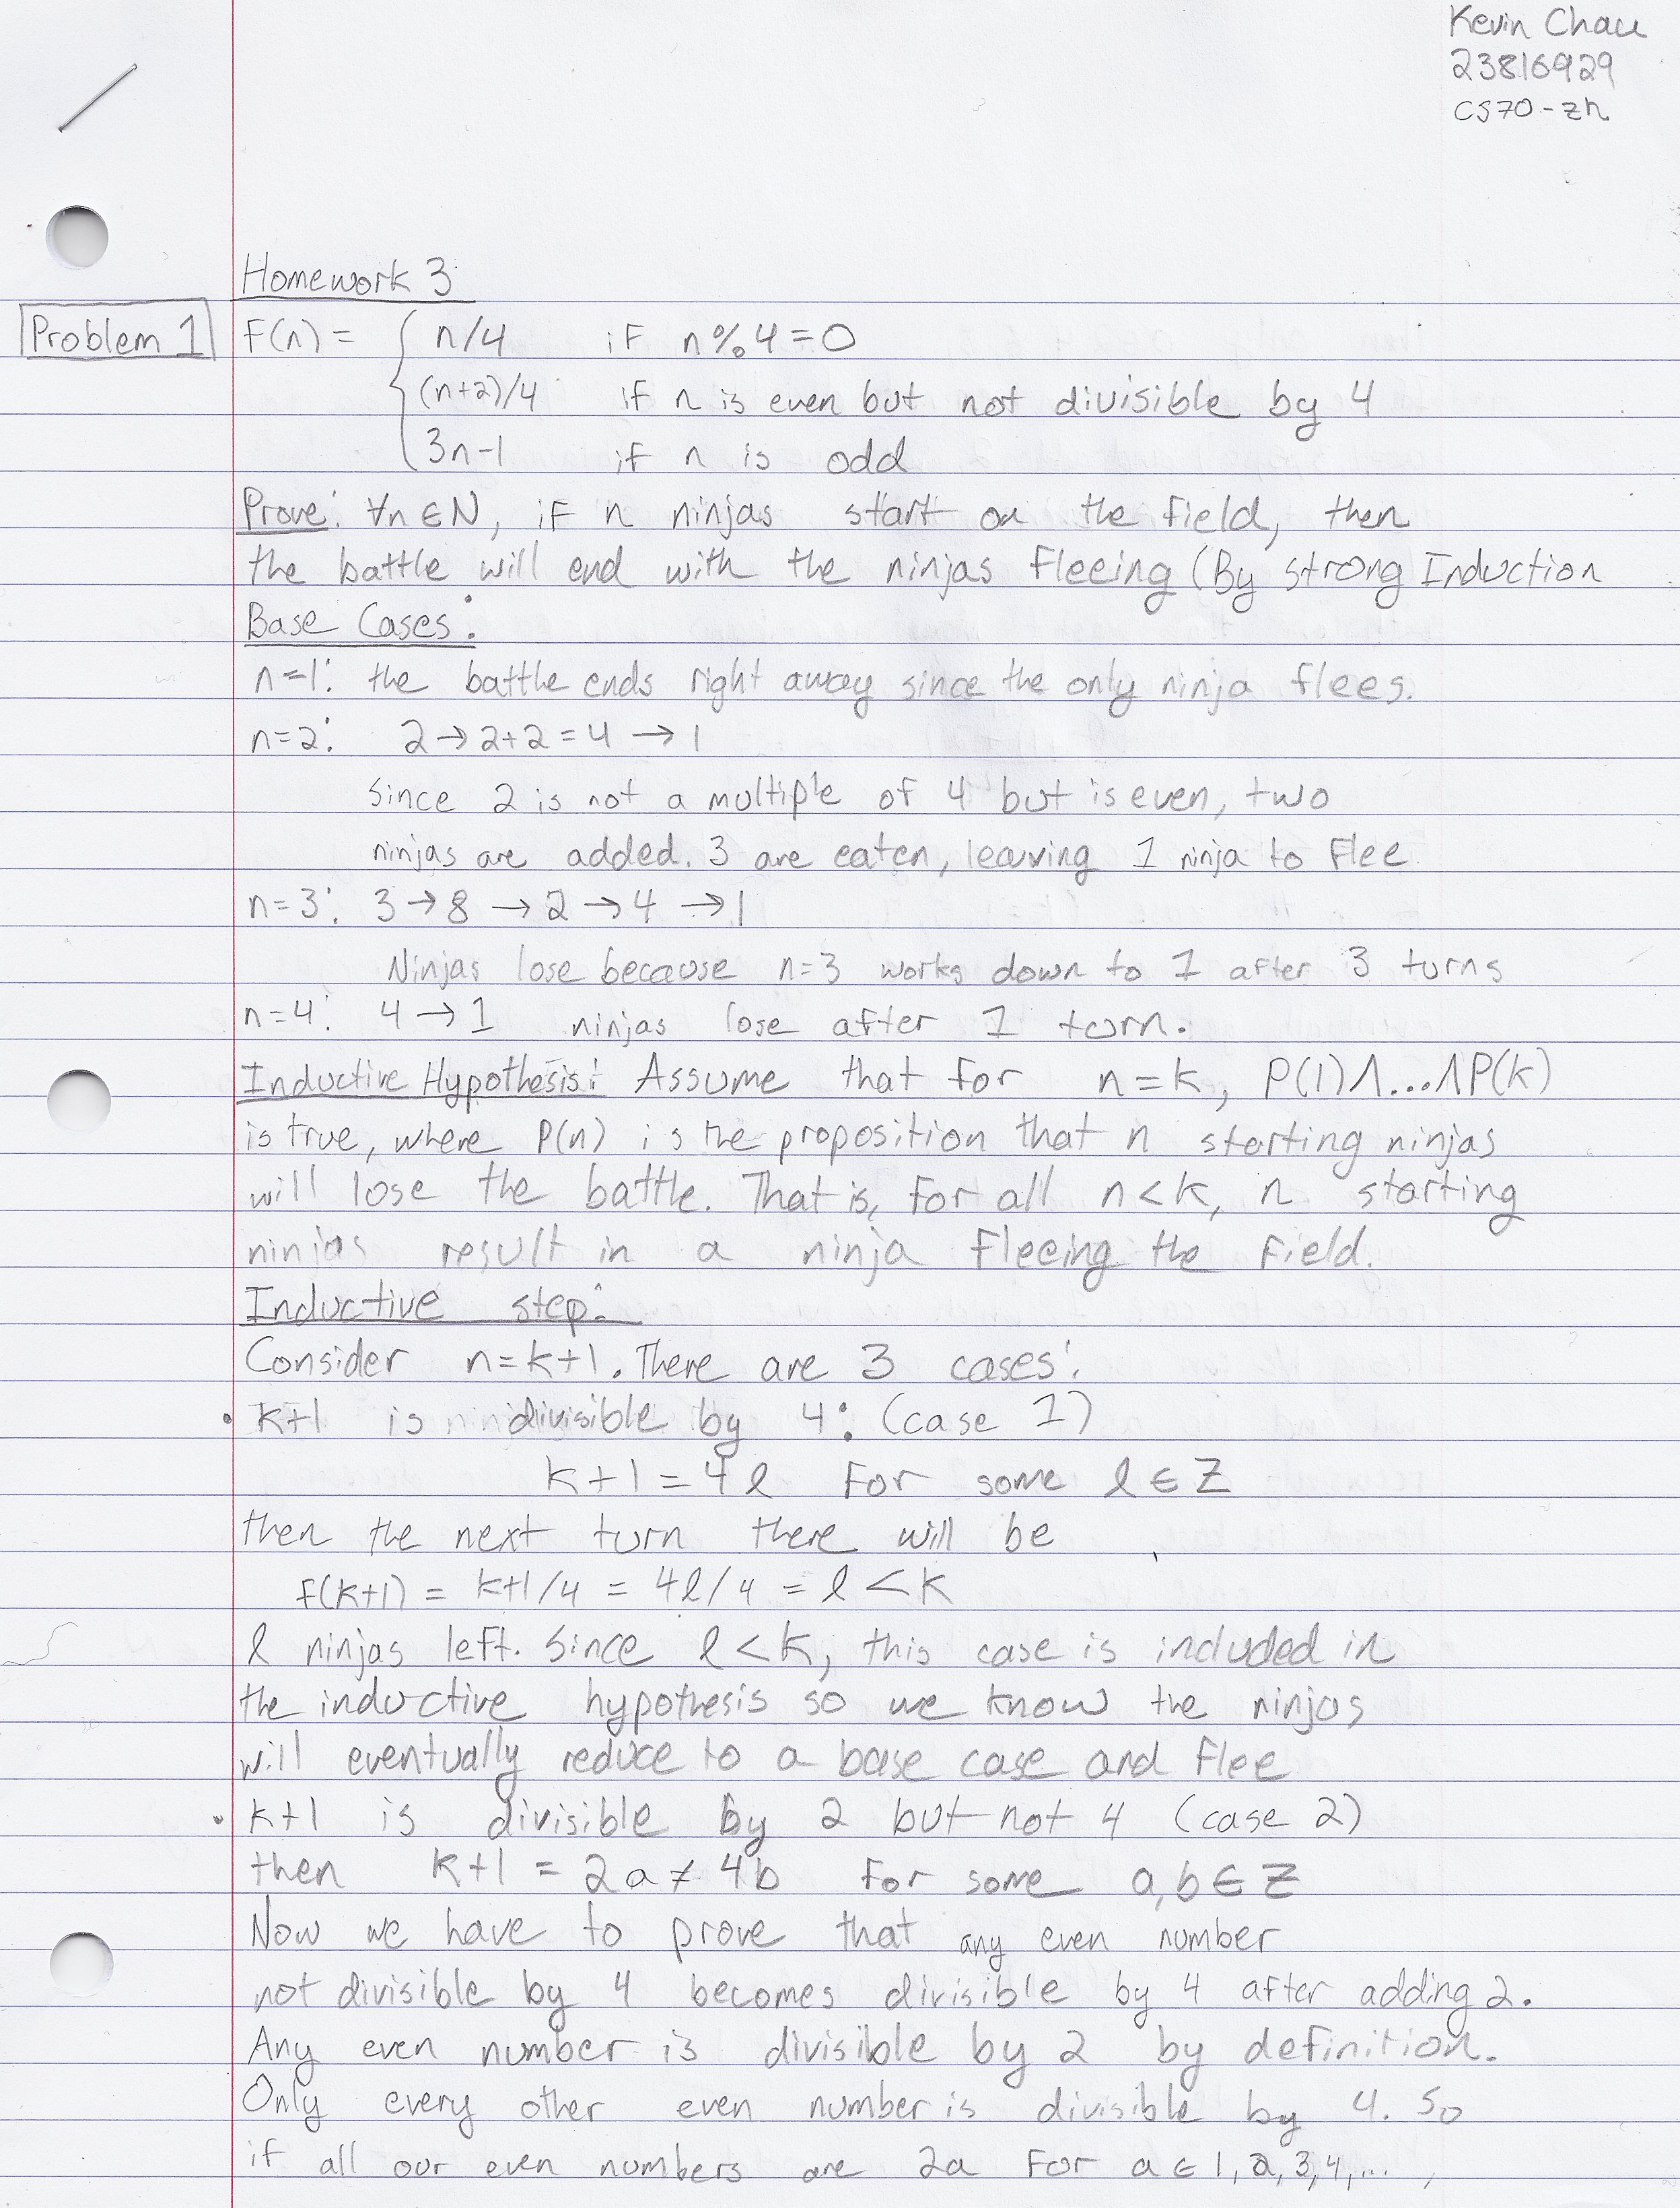 Kevin Chau
23816929
CS70-zh
Homework 3
Problem 1
F(n) = { n/4 if n%4=0
(n+2)/4 if n is even but not divisible by 4
3n-1 if n is odd
Prove: ∀n∈N, if n ninjas start on the field, then
the battle will end with the ninjas fleeing (By strong Induction
Base Cases:
n=1: the battle ends right away since the only ninja flees.
n=2: 2→2+2=4→1
Since 2 is not a multiple of 4 but is even, two
ninjas are added. 3 are eaten, leaving 1 ninja to flee
n=3: 3→8→2→4→1
Ninjas lose because n=3 works down to 1 after 3 turns
n=4: 4→1 ninjas lose after 1 turn.
Inductive Hypothesis: Assume that for n=k, P(1)∧...∧P(k)
is true, where P(n) is the proposition that n starting ninjas
will lose the battle. That is, for all n<k, n starting
ninjas result in a ninja fleeing the field.
Inductive step:
Consider n=k+1. There are 3 cases:
• k+1 is divisible by 4: (case 1)
k+1=4l for some l∈Z
then the next turn there will be
f(k+1) = k+1/4 = 4l/4 = l<k
l ninjas left. Since l<k, this case is included in
the inductive hypothesis so we know the ninjas
will eventually reduce to a base case and flee
• k+1 is divisible by 2 but not 4 (case 2)
then k+1 = 2a≠4b for some a,b∈Z
Now we have to prove that any even number
not divisible by 4 becomes divisible by 4 after adding 2.
Any even number is divisible by 2 by definition.
Only every other even number is divisible by 4. So
if all our even numbers are 2a for a∈1,2,3,4,... ,